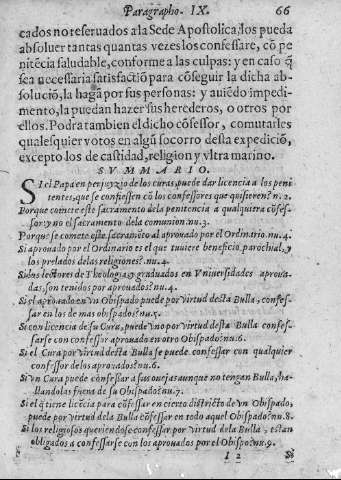 Paragrapho. IX. 66
cados no reseruados a la Sede Apostolica, los pueda
absoluer tantas quantas vezes los confessare, cō pe
nitēcia saludable, conforme a las culpas: y en caso q̃
sea necessaria satisfactiō para cōseguir la dicha ab-
soluciō, la hagā por sus personas: y auiēdo impedi-
mento, la puedan hazer sus herederos, o otros por
ellos. Podra tambien el dicho cōfessor, comutarles
qualesquier votos en algū socorro desta expediciō,
excepto los de castidad, religion y vltra marino.
SVMMARIO.
SI el Papa en perjuyzio de los curas, puede dar licencia a los peni
tentes, que se confiessen cō los confessores que quisieren? n. 2.
Porque comete este sacramento de la penitencia a qualquiera cōfes-
sor: y no el sacramento dela comunion? nu. 3.
Porque se comete este sacramēto al aprouado por el Ordinario. nu. 4.
Si aprouado por el Ordinario es el que tuuiere beneficio parochial, y
los prelados de las religiones? nu. 4.
Si los lectores de Theologia, y graduados en Vniuersidades aproua-
das, son tenidos por aprouados? nu. 4.
Si el aprouado en vn Obispado puede por virtud desta Bulla, confes-
sar en los de mas obispados? nu. 5.
Si con licencia de su Cura, puede vno por virtud desta Bulla confes-
sarse con confessor aprouado en otro Obispado? nu. 6.
Si el Cura por virtud desta Bulla se puede confessar con qualquier
confessor de los aprouados? nu. 6.
Si vn Cura puede cōfessar a sus ouejas aunque no tengan Bulla, ha-
llandolas fuera de su Obispado? nu. 7.
Si el q̃ tiene licēcia para cōfessar en cierto districto de vn Obispado,
puede por virtud dela Bulla cōfessar en todo aquel Obispado? nu. 8.
Si los religiosos queriendose confessar por virtud dela Bulla, estan
obligados a confessarse con los aprouados por el Obispo? nu. 9.
I 2 Si